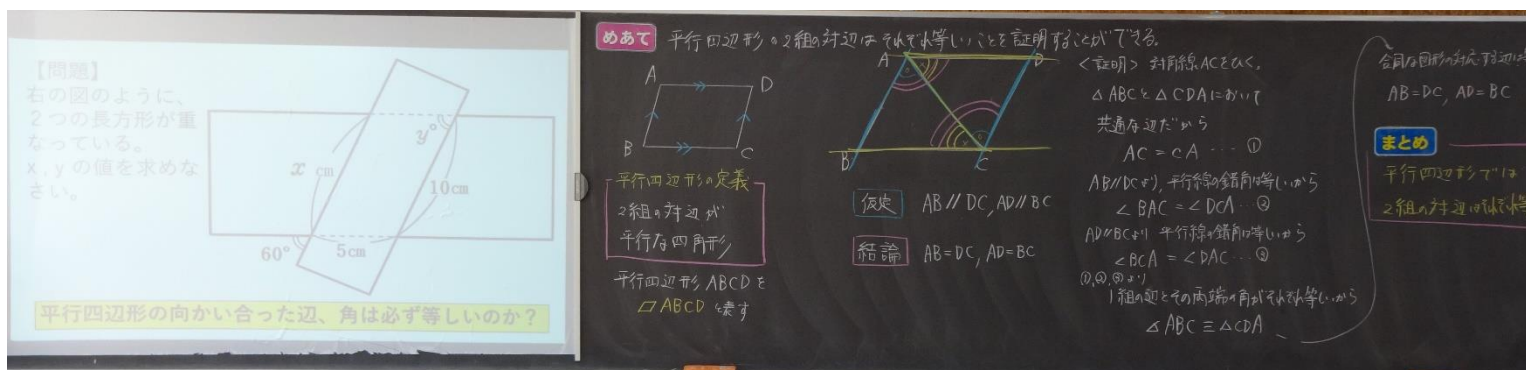 【問題】
右の図のように、
2つの長方形が重
なっている。
x,yの値を求めな
さい。
x cm
y°
10cm
60°
5cm
平行四辺形の向かい合った辺、角は必ず等しいのか？
めあて 平行四辺形の2組の対辺はそれぞれ等しいことを証明することができる。
A
D
B
C
平行四辺形の定義
2組の対辺が
平行な四角形
平行四辺形ABCDを
▱ABCDと表す
A
D
B
C
仮定 AB//DC, AD//BC
結論 AB=DC, AD=BC
<証明> 対角線ACをひく。
△ABCと△CDAにおいて
共通な辺だから
AC=CA…①
AB//DCより、平行線の錯角は等しいから
∠BAC=∠DCA…②
AD//BCより 平行線の錯角は等しいから
∠BCA=∠DAC…③
①,②,③より
1組の辺とその両端の角がそれぞれ等しいから
△ABC≡△CDA
合同な図形の対応する辺は
AB=DC, AD=BC
まとめ
平行四辺形では
2組の対辺はそれぞれ等